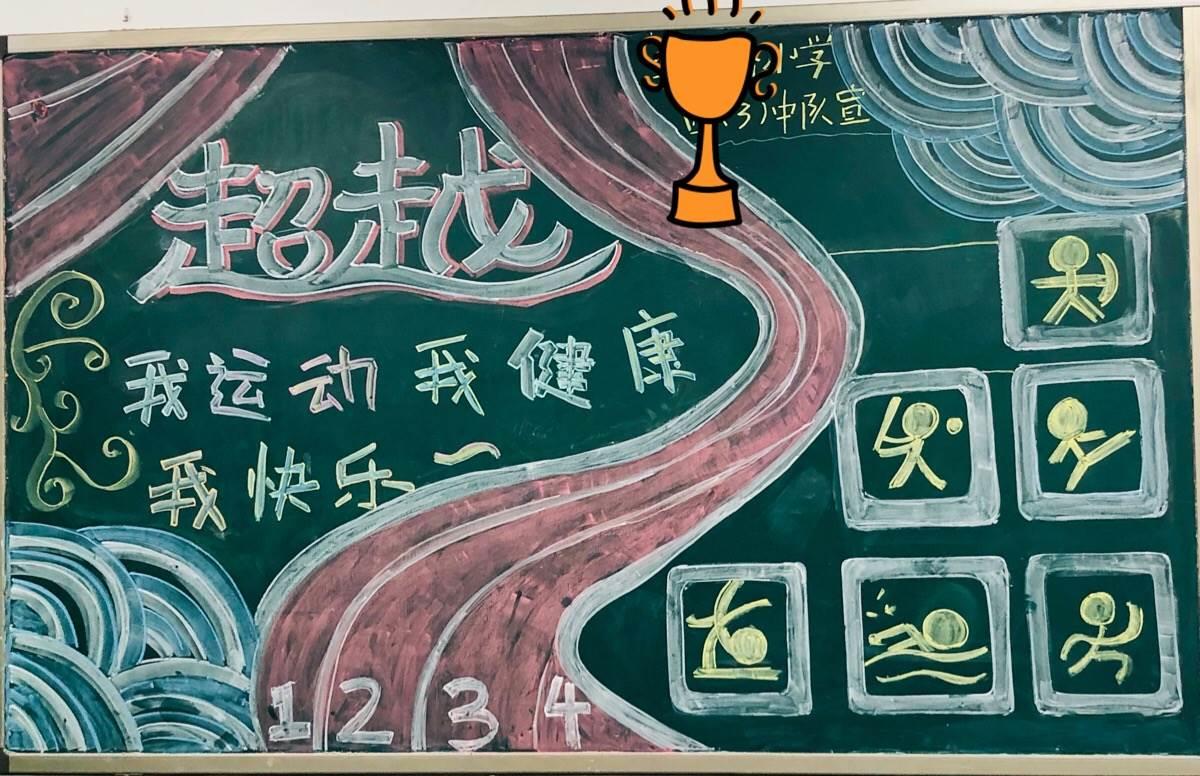 小学
3)中队宣
超越
我运动我健康
我快乐~
1 2 3 4